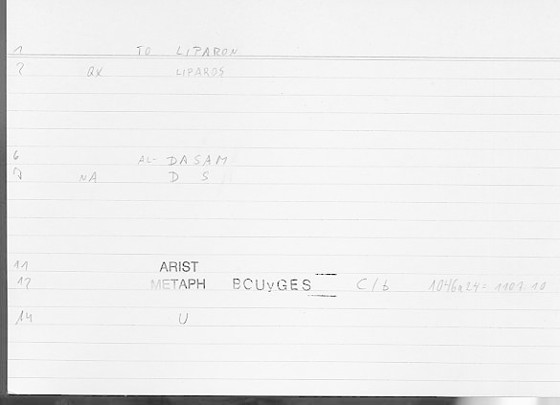 1 TO LIPARON
2 QX LIPAROS
6 AL- DASAM
NA D S
11 ARIST
12 METAPH BCUyGES C/b 1046a24= 1107.10
14 U